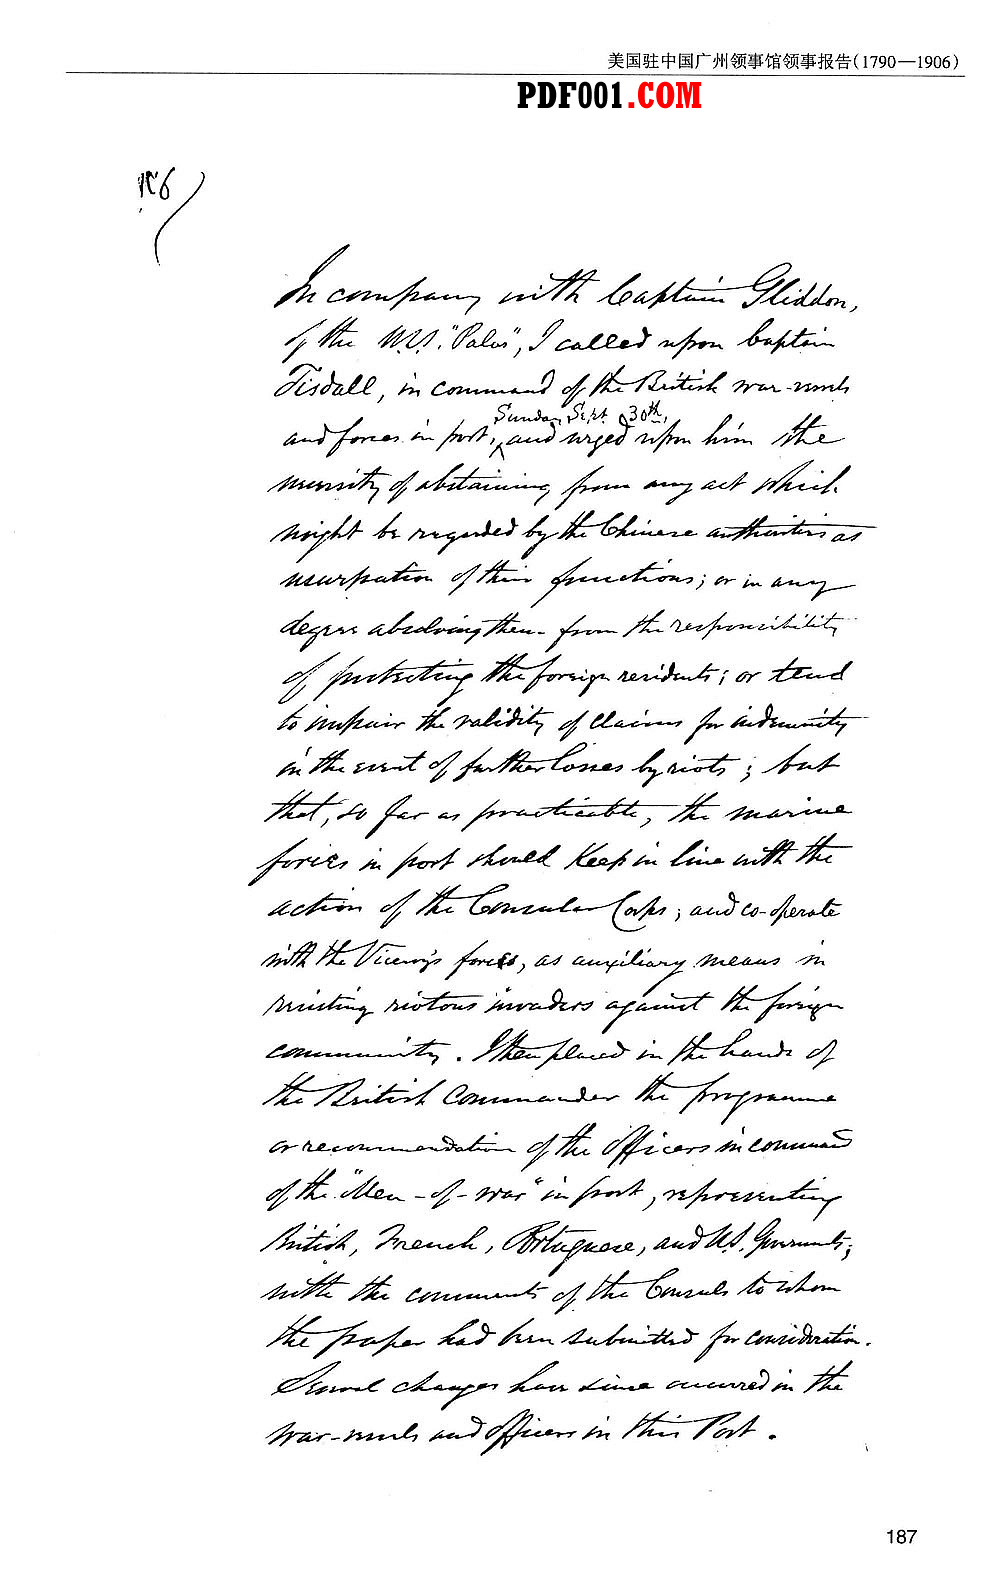 美国驻中国广州领事馆领事报告(1790—1906)
PDF001.COM
In company with Captain Gliddon,
of the U.S. "Palos", I called upon Captain
Tisdall, in command of the British war-vessels
Sunday, Sept. 30th,
and forces in port, and urged upon him the
necessity of abstaining from any act which
might be regarded by the Chinese authorities as
usurpation of their functions; or in any
degree absolving them from the responsibility
of protecting the foreign residents; or tend
to impair the validity of claims for indemnity
in the event of further losses by riots; but
that, so far as practicable, the marine
forces in port should keep in line with the
action of the Consular Corps; and co-operate
with the Viceroy's forces, as auxiliary means in
resisting riotous invaders against the foreign
community. I then placed in the hands of
the British Commander the programme
or recommendation of the Officers in command
of the "Men-of-war" in port, representing
British, French, Portuguese, and U.S. Governments;
with the comments of the Consuls to whom
the paper had been submitted for consideration.
Several changes have since occurred in the
war-vessels and officers in this Port.
187